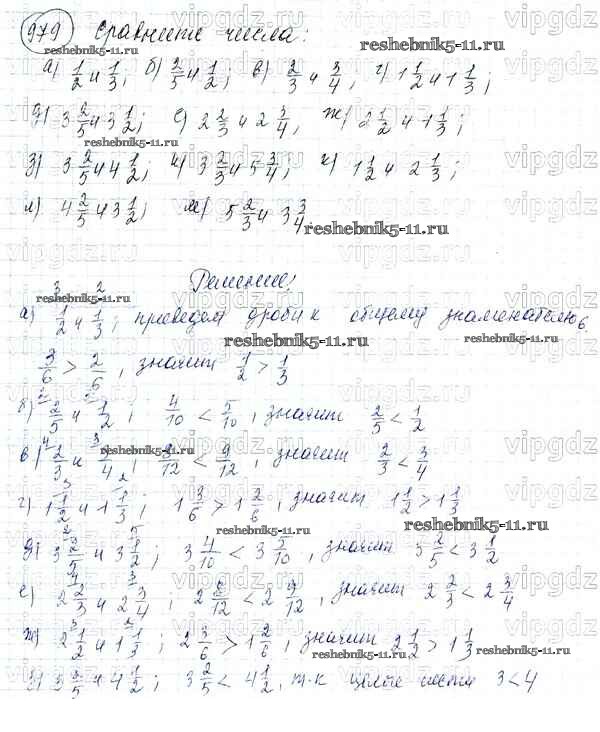 979 Сравните числа:
а) 1/2 и 1/3; б) 2/5 и 1/2; в) 2/3 и 3/4; г) 1 1/2 и 1 1/3;
д) 3 2/5 и 3 1/2; е) 2 2/3 и 2 3/4; ж) 2 1/2 и 1 1/3;
з) 3 2/5 и 4 1/2; и) 3 2/3 и 5 3/4; к) 1 1/2 и 2 1/3;
л) 4 2/5 и 3 1/2; м) 5 2/3 и 3 3/4.
Решение:
а) 1/2 и 1/3; приведем дроби к общему знаменателю 6.
3/6 > 2/6, значит 1/2 > 1/3
б) 2/5 и 1/2; 4/10 < 5/10, значит 2/5 < 1/2
в) 2/3 и 3/4; 8/12 < 9/12, значит 2/3 < 3/4
г) 1 1/2 и 1 1/3; 1 3/6 > 1 2/6, значит 1 1/2 > 1 1/3
д) 3 2/5 и 3 1/2; 3 4/10 < 3 5/10, значит 3 2/5 < 3 1/2
е) 2 2/3 и 2 3/4; 2 8/12 < 2 9/12, значит 2 2/3 < 2 3/4
ж) 2 1/2 и 1 1/3; 2 3/6 > 1 2/6, значит 2 1/2 > 1 1/3
з) 3 2/5 и 4 1/2; 3 2/5 < 4 1/2, т.к целые части 3 < 4
vipgdz.ru
reshebnik5-11.ru